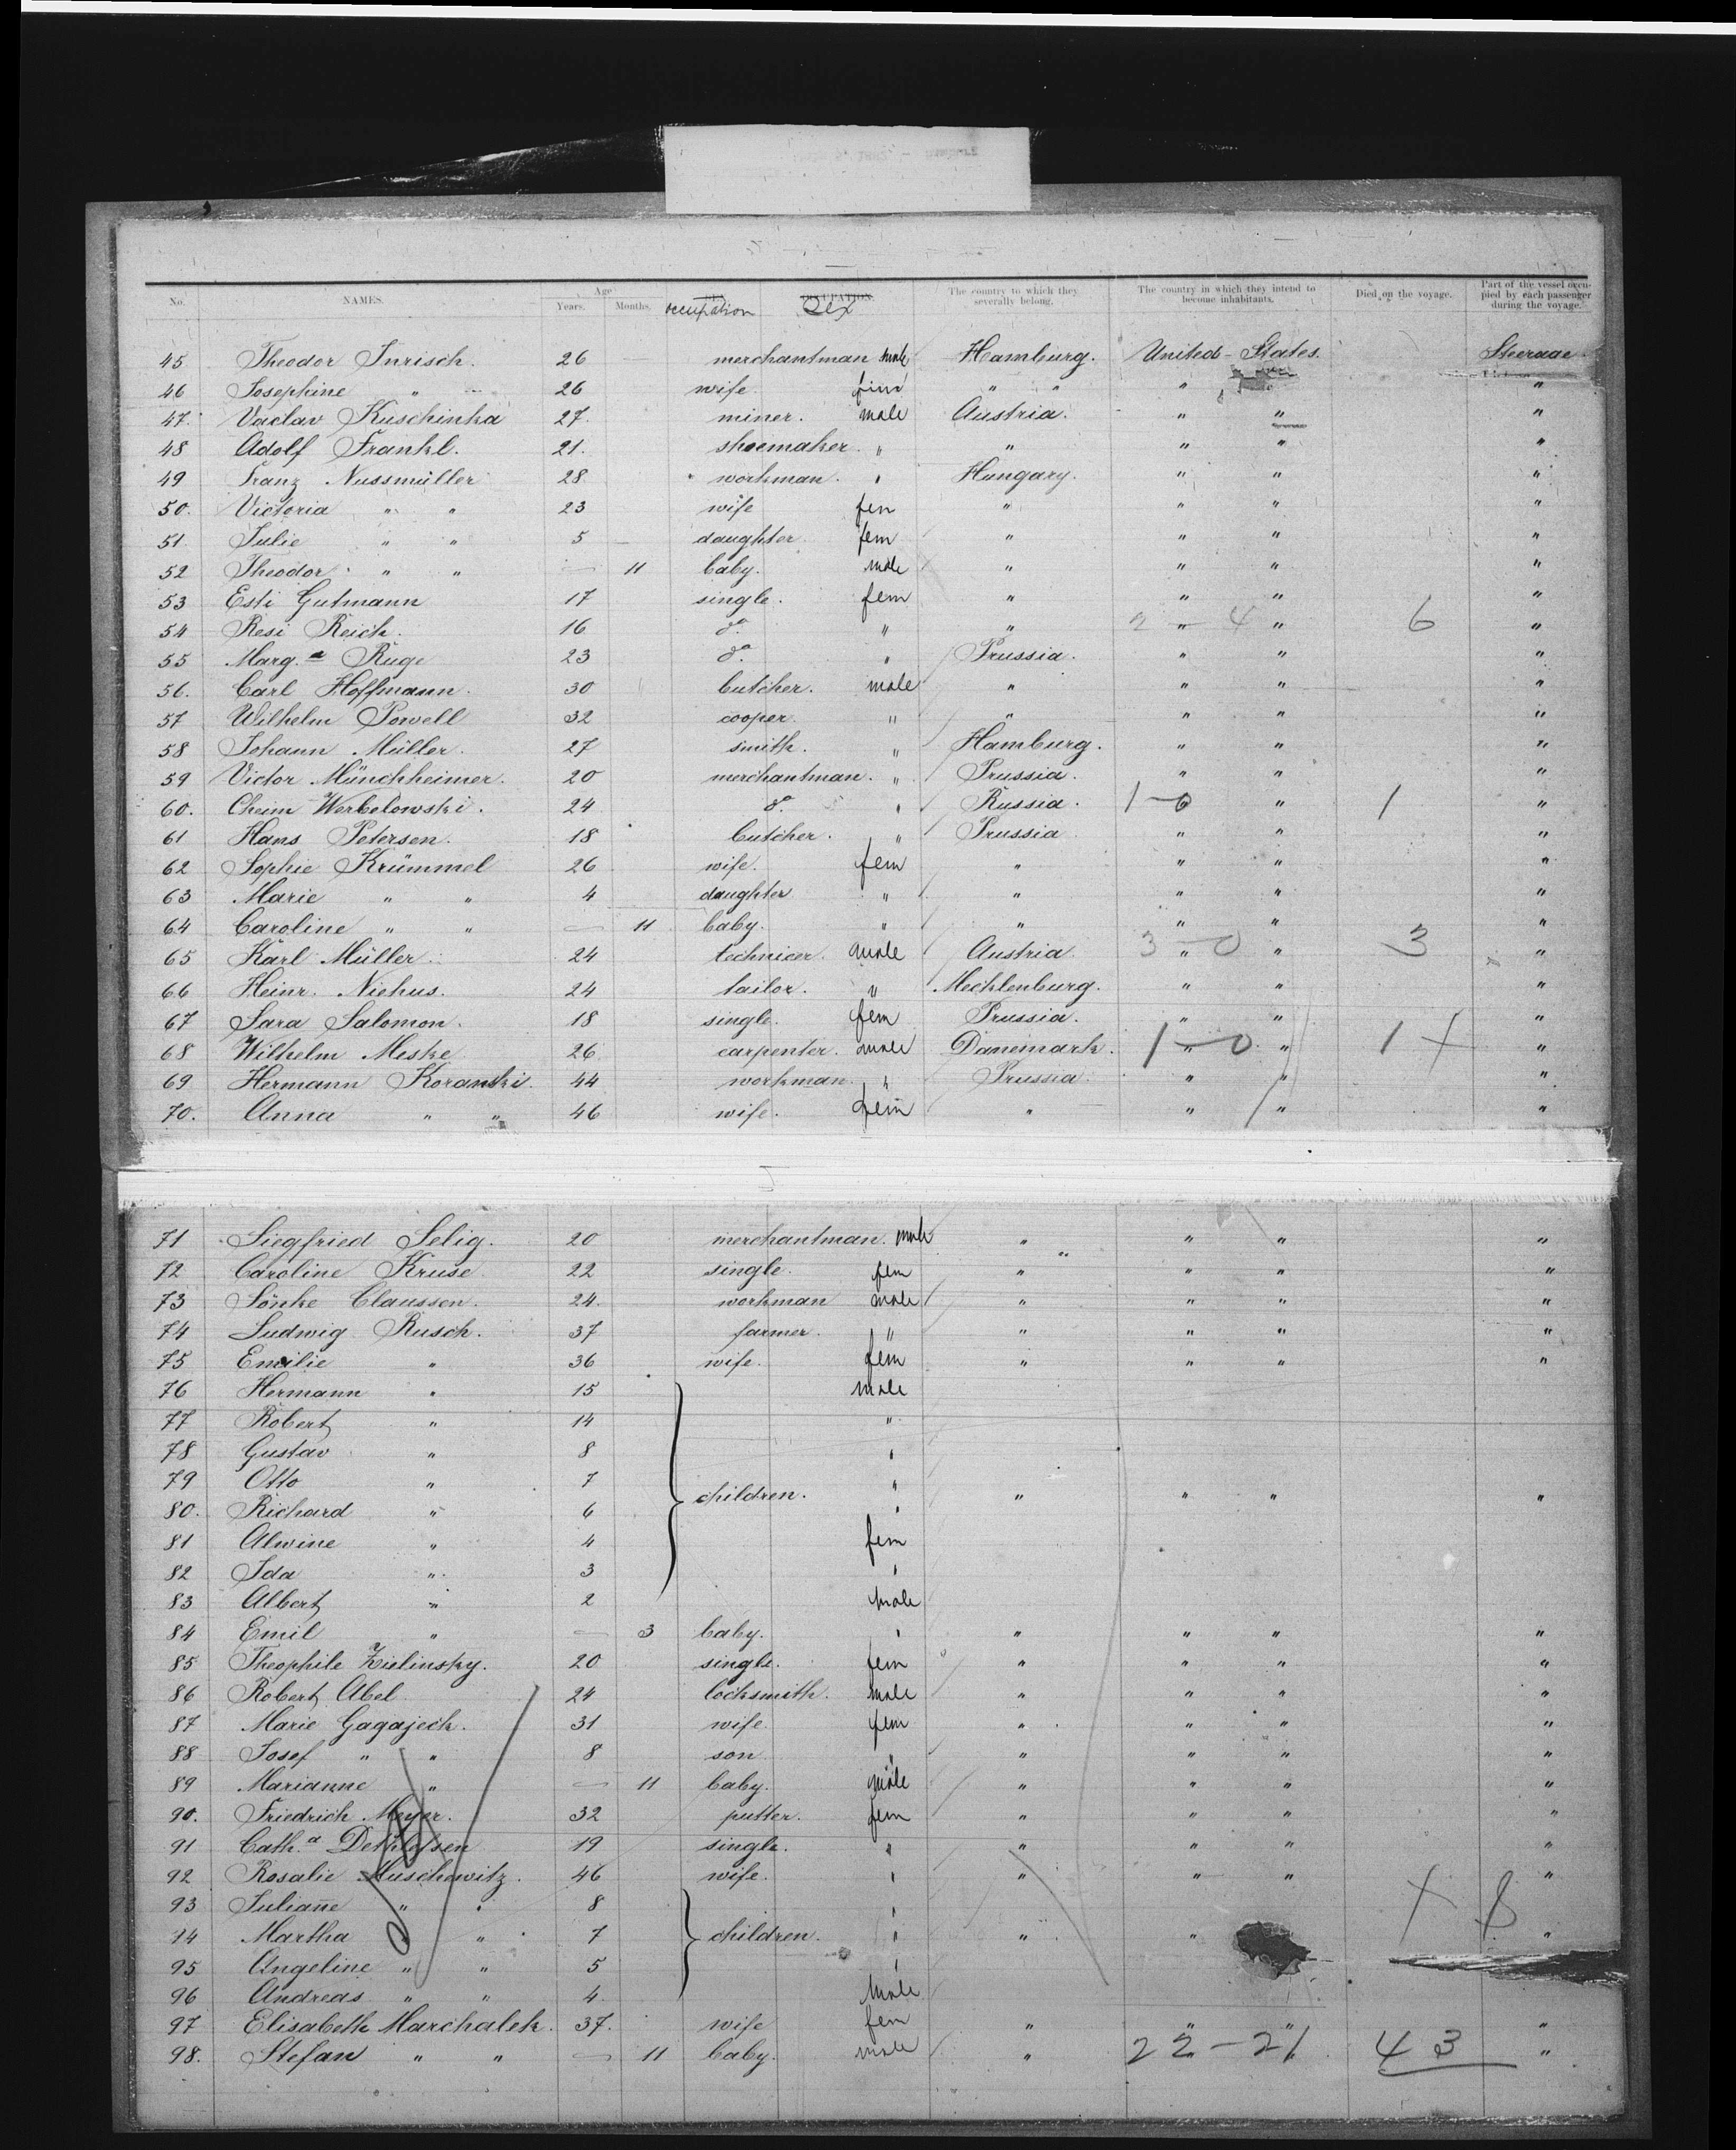 No. NAMES. Age Years. Months. occupation OCCUPATION. Sex The country to which they severally belong. The country in which they intend to become inhabitants. Died on the voyage. Part of the vessel occupied by each passenger during the voyage.
45 Theodor Jnrisch. 26 merchantman male Hamburg. United-States. Steerage
46 Josephine " 26 wife. " " " "
47. Vaclav Kuschinka 27. miner. male Austria. " " "
48 Adolf Frankl. 21. shoemaker. " " " " "
49 Franz Nussmüller 28. workman. " Hungary. " " "
50. Victoria " " 23 wife fem " " " "
51. Julie " " 5 daughter fem " " " "
52 Theodor " " — 11 baby. male " " " "
53 Esti Gutmann 17 single. fem " " " "
54 Resi Reich. 16 do. " " 2 " - 4 " 6 "
55 Marg.a Ruge 23 do. " Prussia. " " "
56. Carl Hoffmann. 30 butcher. male " " " "
57 Wilhelm Powell 32 cooper. " " " " "
58 Johann Müller. 27 smith. " Hamburg. " " "
59 Victor Münchheimer. 20 merchantman. " Prussia. " " "
60. Cheim Werbelowski. 24 do. " Russia. 1-0 " 1 "
61 Hans Petersen. 18 butcher. " Prussia " " "
62 Sophie Krümmel 26 wife. fem " " " "
63 Marie " " 4 daughter " " " " "
64 Caroline " " — 11 baby. " " " " "
65 Karl Müller. 24 technicer. male Austria. 3 " 0 " 3 "
66 Heinr. Niehus. 24 tailor. " Mecklenburg. " " "
67 Sara Salomon. 18 single. fem Prussia. " " "
68 Wilhelm Meske 26 carpenter. male Danemark. 1 " 0 " 1 + "
69 Hermann Koranski. 44 workman. " Prussia. " " "
70. Anna " " 46 wife. fem " " " "
71 Siegfried Selig. 20 merchantman. male " " " "
72 Caroline Kruse 22 single. fem " " " "
73 Sönke Claussen. 24. workman male " " " "
74 Ludwig Rusch. 37 farmer. " " " " "
75 Emilie " 36 wife. fem " " " "
76 Hermann " 15 male
77 Robert " 14 "
78 Gustav " 8 "
79 Otto " 7 children. " " " " "
80. Richard " 6 "
81 Alwine " 4 fem
82 Ida " 3 "
83 Albert " 2 male
84 Emil " — 3 baby. " " " " "
85 Theophile Zielinsky. 20 single. fem " " " "
86 Robert Abel 24 locksmith. male " " " "
87 Marie Gagajeck. 31 wife. fem " " " "
88 Josef " " 8 son " " " " "
89 Marianne " — 11 baby. male " " " "
90. Friedrich Meyer. 32 putter. fem " " " "
91 Cath.a Dethlefsen 19 single. " " " " "
92 Rosalie Muschewitz. 46 wife. " " " " "
93 Juliane " " 8 "
94 Martha " 7 children. " " " "
95 Angeline " " 5 "
96 Andreas " " 4. male
97 Elisabeth Marchalek. 37. wife fem " " " "
98. Stefan " " — 11 baby. male " 22-21 43 "